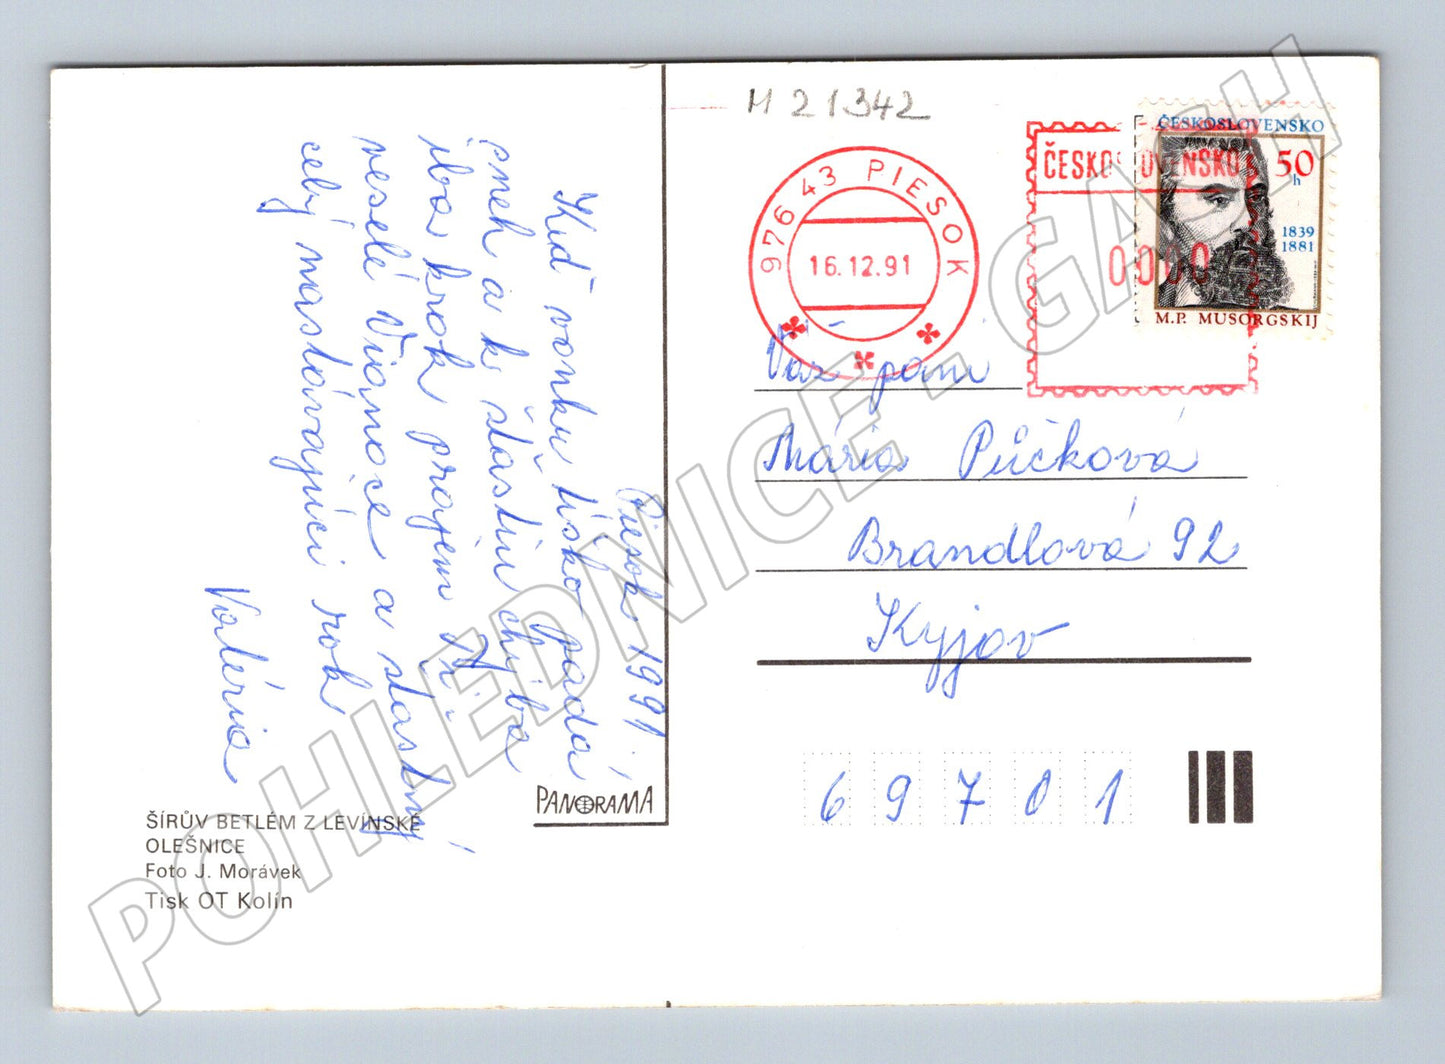 M 21342
976 43 PIESOK
16.12.91
ČESKOSLOVENSKO
0000
ČESKOSLOVENSKO
50
h
1839
1881
M.P. MUSORGSKIJ
Váž. pani
Mária Půčková
Brandlová 92
Kyjov
69701
Piesok 1991
Keď vonku tíško padá
sneh a k šťastiu chýba
iba krok prajem Ti
veselé Vianoce a šťastný
celý nastávajúci rok
Valéria
PANORAMA
ŠÍRŮV BETLÉM Z LEVÍNSKÉ
OLEŠNICE
Foto J. Morávek
Tisk OT Kolín
POHLEDNICE - GASH